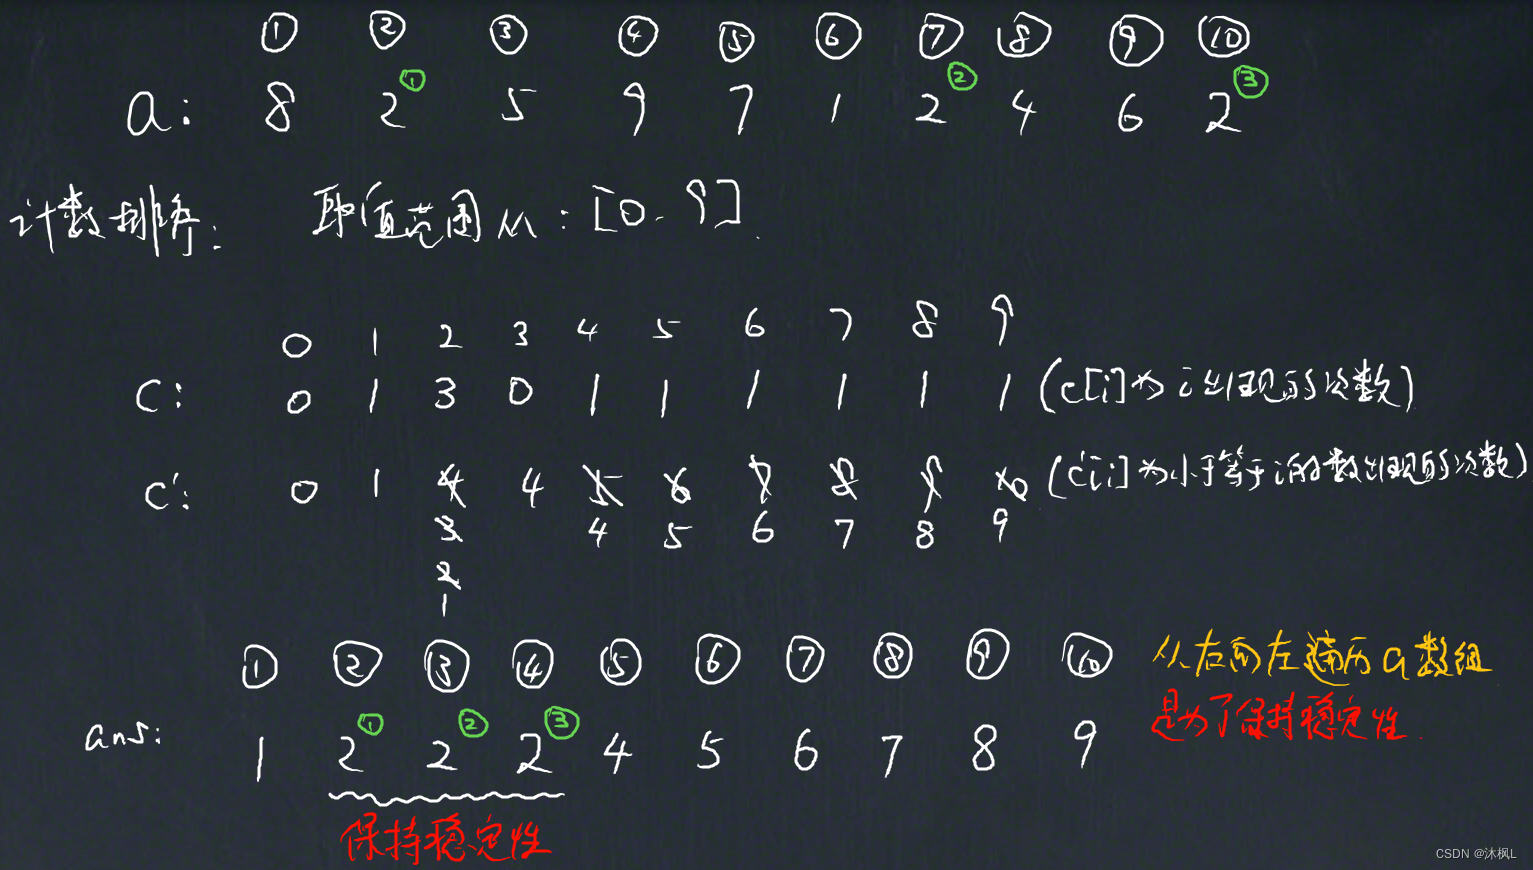 ① ② ③ ④ ⑤ ⑥ ⑦ ⑧ ⑨ ⑩
① ② ③
a: 8 2 5 9 7 1 2 4 6 2
计数排序: 取值范围从:[0.9].
0 1 2 3 4 5 6 7 8 9
C: 0 1 3 0 1 1 1 1 1 1 (c[i]为i出现的次数)
C': 0 1 4 4 5 6 7 8 9 10 (c'[i]为小于等于i的数出现的次数)
3 4 5 6 7 8 9
2
1
① ② ③ ④ ⑤ ⑥ ⑦ ⑧ ⑨ ⑩ 从右向左遍历a数组
① ② ③ 是为了保持稳定性.
ans: 1 2 2 2 4 5 6 7 8 9
保持稳定性
CSDN @沐枫L